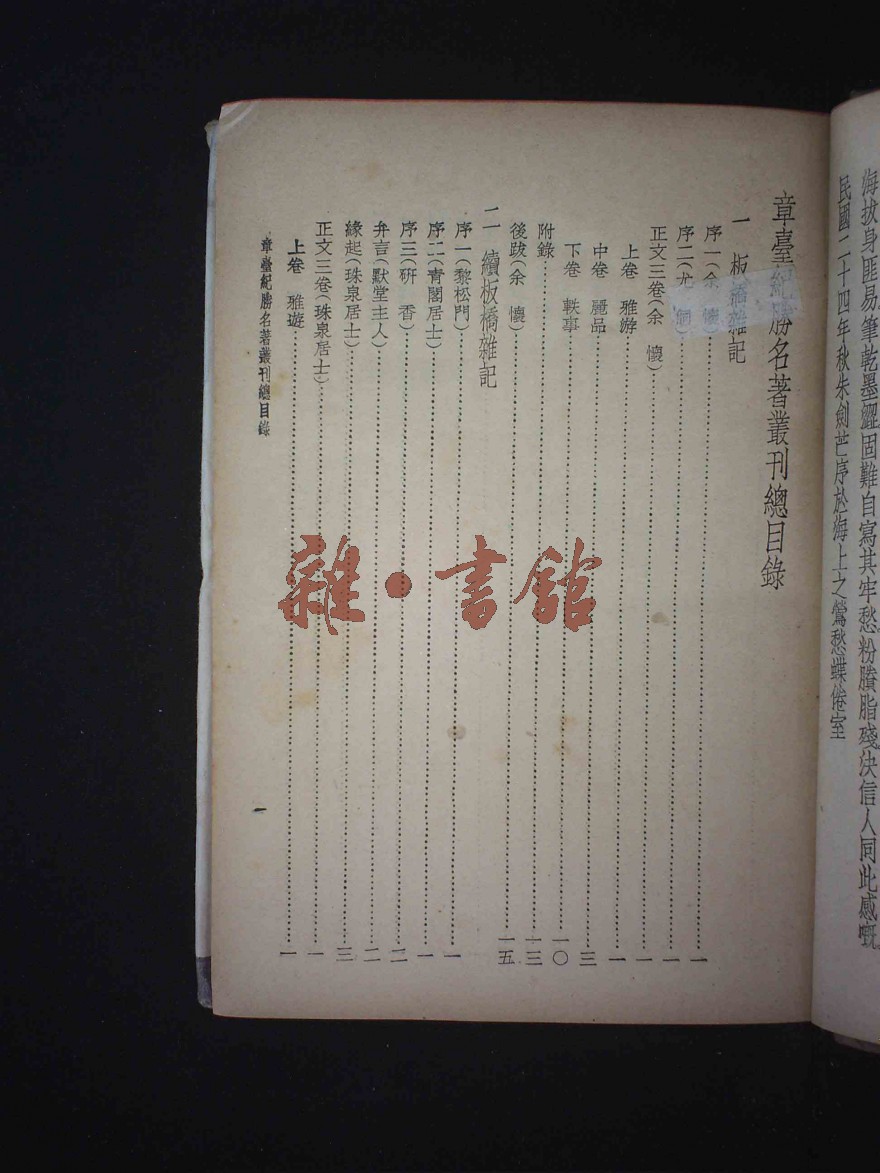 海拔身匪易筆乾墨纙固難自寫其牢愁粉賸脂殘決信人同此感嘅。
民國二十四年秋朱劍芒序於海上之鶯愁蝶倦室
章臺紀勝名著叢刊總目錄
一 板橋雜記
序一(余 懷)……一
序二(尤 侗)……一
正文三卷(余 懷)……一
上卷 雅游……一
中卷 麗品……三
下卷 軼事……一〇
附錄……一三
後跋(余 懷)……一五
二 續板橋雜記
序一(黎松門)……一
序二(青閣居士)……一
序三(研 香)……二
弁言(默堂主人)……二
緣起(珠泉居士)……三
正文三卷(珠泉居士)……一
上卷 雅遊……一
章臺紀勝名著叢刊總目錄
一
雜·書館